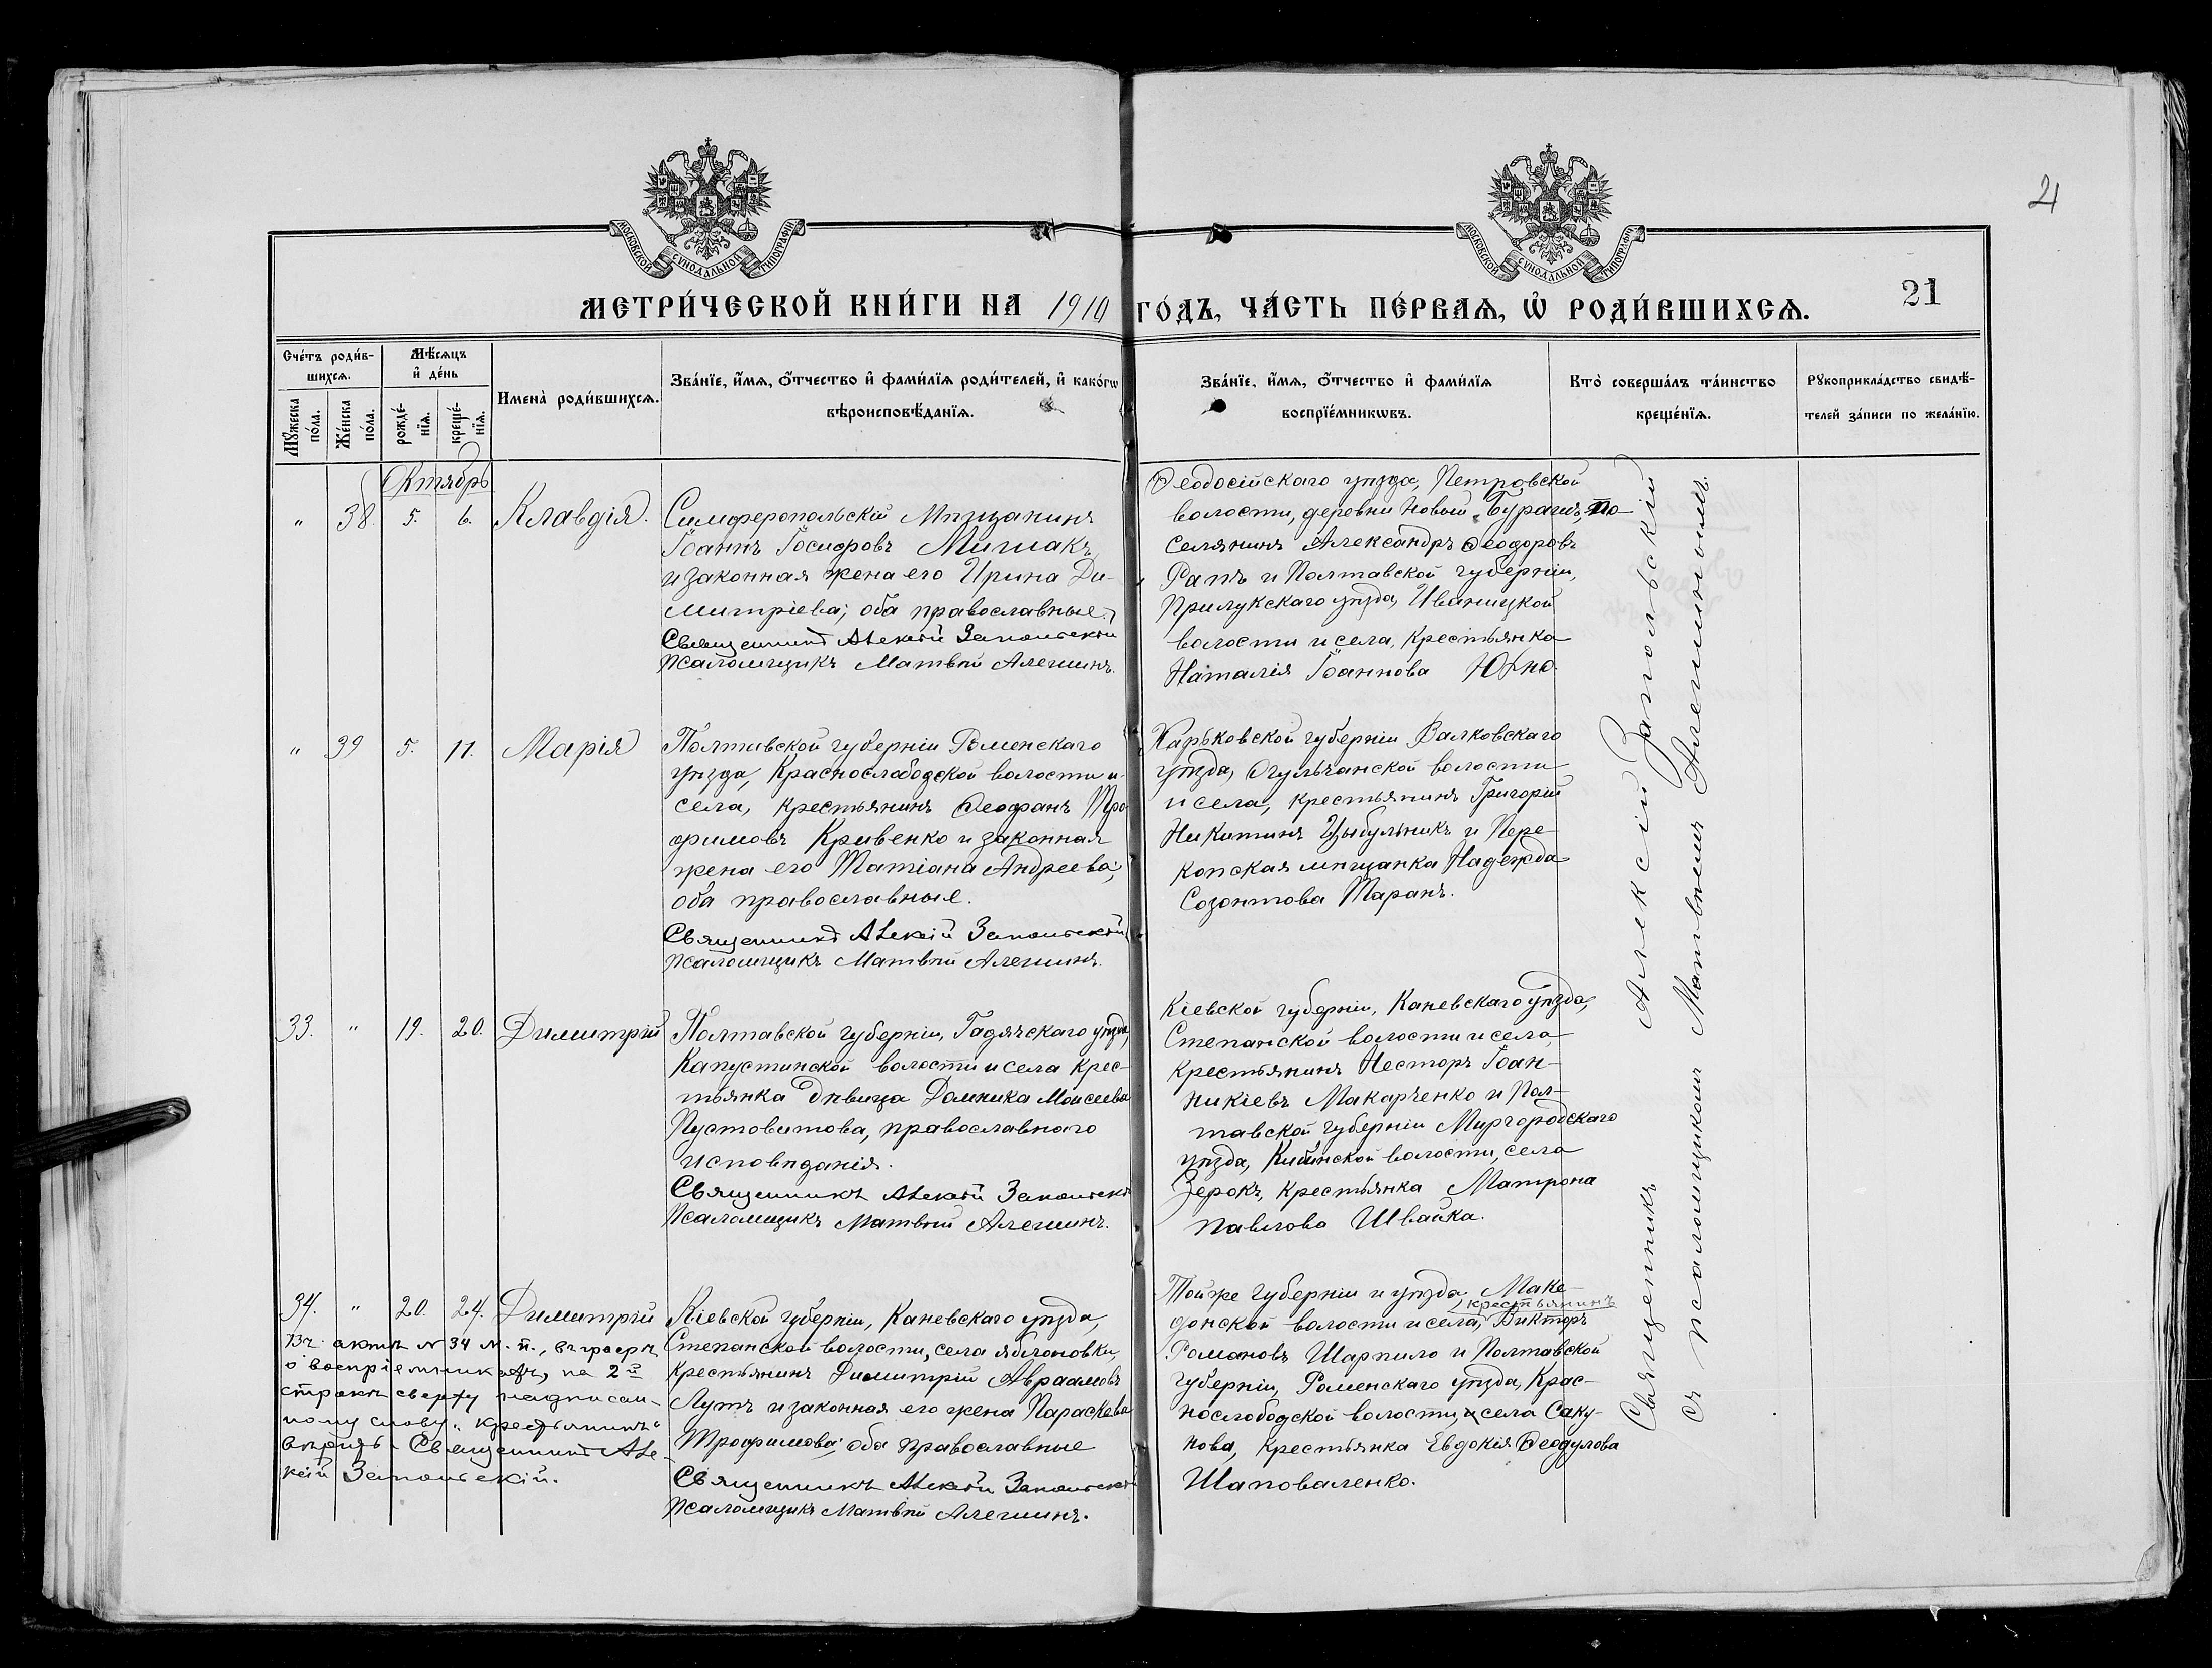 21
МОСКОВСКОЙ СѴНОДАЛЬНОЙ ТИПОГРАФІИ
МОСКОВСКОЙ СѴНОДАЛЬНОЙ ТИПОГРАФІИ
МЕТРИ́ЧЕСКОЙ КНИ́ГИ НА 1910 ГО́ДЪ, ЧА́СТЬ ПЕ́РВАѦ, Ѡ҆ РОДИ́ВШИХСѦ. 21
Сче́тъ роди́в-
шихсѧ.
Мꙋ́жеска по́ла.
Же́нска по́ла.
Мѣ́сѧцъ и҆ де́нь
рожде́-
нїѧ.
креще́-
нїѧ.
Имена̀ роди́вшихсѧ.
Зва́нїе, и҆́мѧ, ѻ҆́тчество и҆ фами́лїѧ роди́телей, и҆ како́гѡ
вѣроисповѣ́данїѧ.
Зва́нїе, и҆́мѧ, ѻ҆́тчество и҆ фами́лїѧ
воспрїе́мникѡвъ.
Кто̀ соверша́лъ та́инство
креще́нїѧ.
Рꙋкоприкла́дство свидѣ́-
телей за́писи по жела́нїю.
Октябрь
" 38. 5. 6. Клавдія.
Симферопольскій Мѣщанинъ
Іоаннъ Іосифовъ Мишакъ
и законная жена его Ирина Ди-
митріева; оба православные.
Священникъ Алексій Запольскій
Псаломщикъ Матвѣй Алешинъ.
Ѳеодосійскаго уѣзда, Петровской
волости, деревни Новый Бурагъ, По
селянинъ Александръ Ѳеодоровъ
Рапъ и Полтавской губерніи,
Прилукскаго уѣзда, Иваницкой
волости и села, крестьянка
Наталія Іоаннова Юхно.
" 39 5. 11. Марія
Полтавской губерніи Роменскаго
уѣзда, Краснослободской волости и
села, крестьянинъ Ѳеофанъ Тро
фимовъ Кривенко и законная
жена его Татіана Андреева;
оба православные.
Священникъ Алексій Запольскій
Псаломщикъ Матвѣй Алешинъ.
Харьковской губерніи Валковскаго
уѣзда, Огульчанской волости
и села, крестьянинъ Григорій
Никитинъ Цыбульникъ и Пере-
копская мѣщанка Надежда
Созонтова Таранъ.
33. " 19. 20. Димитрій
Полтавской губерніи, Гадячскаго уѣзда,
Капустинской волости и села крес-
тьянка дѣвица Домника Моисеева
Пустовитова, православнаго
исповѣданія.
Священникъ Алексій Запольскій
Псаломщикъ Матвѣй Алешинъ.
Кіевской губерніи, Каневскаго уѣзда,
Степанской волости и села,
крестьянинъ Несторъ Іоан-
никіевъ Макарченко и Пол-
тавской губерніи Миргородскаго
уѣзда, Кибинской волости, села
Зерокъ, крестьянка Матрона
Павлова Швайка.
34. " 20. 24. Димитрій
Въ актѣ № 34 м. п., въ графѣ
о воспріемникахъ, на 2й
строкѣ сверху надписан-
ному слову "крестьянинъ"
вѣрить. Священникъ Але-
ксій Запольскій.
Кіевской губерніи, Каневскаго уѣзда,
Степанской волости, села Яблоновки,
крестьянинъ Димитрій Авраамовъ
Лутъ и законная его жена Параскева
Трофимова; оба православные
Священникъ Алексій Запольскій
Псаломщикъ Матвѣй Алешинъ.
Той же губерніи и уѣзда, Маке-
донской волости и села, крестьянинъ Викторъ
Романовъ Шарпило и Полтавской
губерніи, Роменскаго уѣзда, Крас-
нослободской волости, села Саку-
нова, крестьянка Евдокія Ѳеодулова
Шаповаленко.
Священникъ Алексій Запольскій
съ псаломщикомъ Матвѣемъ Алешинымъ.